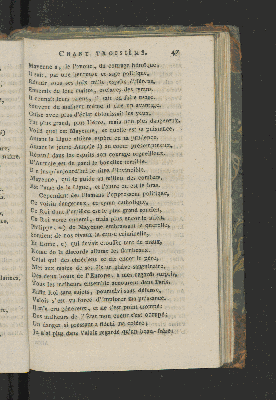 CHANT TROISIÈME. 47
Mayenne a, je l'avoue, un courage héroïque ;
Il sait, par une heureuse et sage politique,
Réunir sous ses lois mille esprits différens,
Ennemis de leur maître, esclaves des tyrans.
Il connaît leurs talens, il sait en faire usage ;
Souvent du malheur même il tire un avantage.
Guise avec plus d'éclat éblouissait les yeux,
Fut plus grand, plus héros, mais non plus dangereux.
Voilà quel est Mayenne, et quelle est sa puissance.
Autant la Ligue altière espère en sa prudence,
Autant le jeune Aumale au cœur présomptueux,
Répand dans les esprits son courage orgueilleux.
D'Aumale est du parti le bouclier terrible.
Il a jusqu'aujourd'hui le titre d'invincible.
Mayenne, qui le guide au milieu des combats,
Est l'ame de la Ligue, et l'autre en est le bras.
Cependant des Flamands l'oppresseur politique,
Ce voisin dangereux, ce tyran catholique,
Ce Roi dont l'artifice est le plus grand soutien,
Ce Roi votre ennemi, mais plus encor le mien,
Philippe, de Mayenne embrassant la querelle,
Soutient de nos rivaux la cause criminelle,
Et Rome, qui devait étouffer tant de maux,
Rome de la discorde allume les flambeaux.
Celui qui des chrétiens se dit encor le père,
Met aux mains de ses fils un glaive sanguinaire.
Des deux bouts de l'Europe, à mes regards surpris,
Tous les malheurs ensemble accourent dans Paris.
Enfin Roi sans sujets, poursuivi sans défense,
Valois s'est vu forcé d'implorer ma puissance.
Il m'a cru généreux, et ne s'est point trompé :
Des malheurs de l'État mon cœur s'est occupé ;
Un danger si pressant a fléchi ma colère ;
Je n'ai plus dans Valois regardé qu'un beau-frère ;